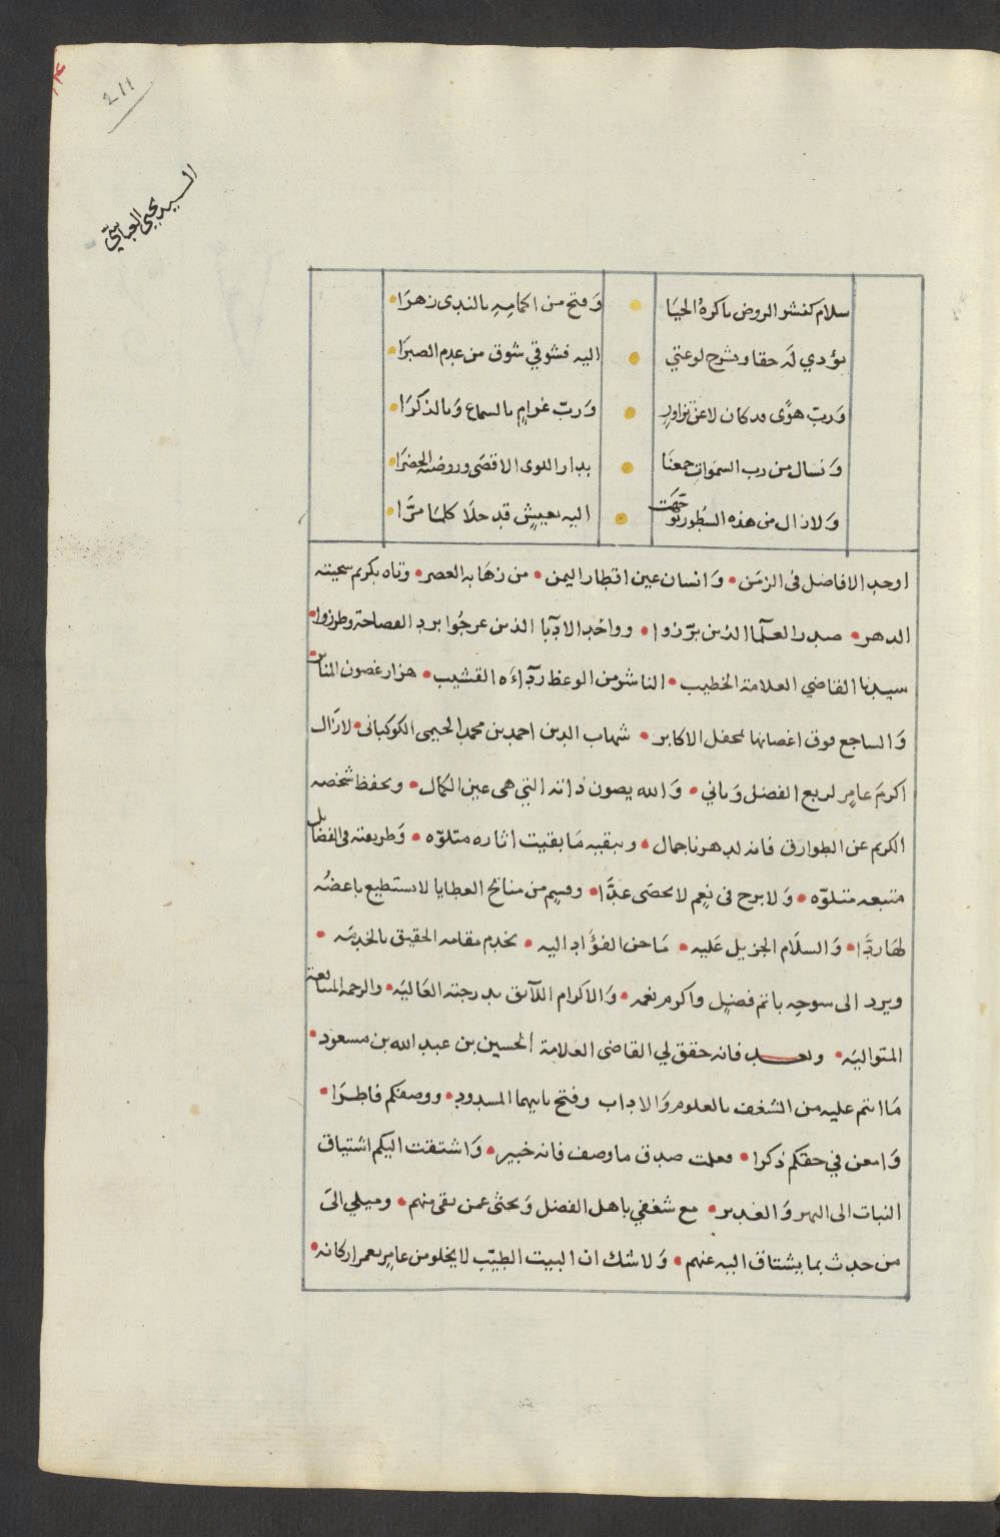 211
السيد يحيى العباسي
سلام كنشر الروض باكره الحيَا • وَفتح من اكمامِهِ بالندى زهرَا •
يؤدي لَه حقا ويشرح لوعتي • اليه فشوقي شوق من عدم الصبرَا •
وَرب هوًى قد كان لا عن تزاورٍ • وَربّ غرامٍ بالسماع وَبالذكرَا •
وَنسال من رب السموات جمعنَا • بدار اللوى الاقصَى وروضته الخضرَا •
وَلازال من هذه السُطور توجّهَت • اليه بعيشٍ قد حلَا كلمَا مرَّا •
اوحد الافاضل فى الزمَن • وَانسان عين اقطار اليمن • من زهَا به العصر • وتاه بكريم سجيته
الدهر • صدر العلمآ الذين برّزوا • وواحد الادبآ الذين عرجُوا برد الفصاحة وطرزوا •
سيدنا القاضي العلامة الخطيب • الناشر من الوعظ ردآءَه القشيب • هزار غصون المنابر
وَالساجع فوق اغصانها لمحفل الاكابر • شهاب الدين احمد بن محمد الحيمى الكوكبانى • لازَال
اكرمَ عامرٍ لربع الفضل وَبانى • وَالله يصون ذاته التي هى عين الكمال • ويحفظ شخصه
الكريم عن الطوارق فانه لدهرنا جمال • ويبقيه مَا بقيت اثاره متلوّه • وَطريقته فى الفضايل
متبعه متلوّه • وَلا برح فى نِعمٍ لا تحصَى عدًّا • وقسيمٍ من منائح العطايا لا يستطيع باعضُه
لهَا ردًّا • وَالسلَام الجزيل عَليه • مَا حن الفؤَاد اليه • يخدم مقامه الحقيق بالخدمَه •
ويرد الى سوحهِ باتم فضيلٍ واكرم نغمه • وَالاكرام اللآئق بدرجته العَاليَه • والرحمه المتتابعة
المتواليَه • وبعــد فانه حقق لي القاضى العلامة الحسين بن عبد الله بن مسعود •
مَا انتم عليه من الشغف بالعلوم وَالاداب وفتح بابهما المسدود • ووصفكم فاطرَا •
وَامعن في حقكم ذكرا • فعلمت صدق ما وصف فانه خبير • وَاشتقت اليكم اشتياق
النبات الى النهر وَالغدير • مع شغفي باهل الفضل وَبحثى عمن بقى منهم • وميلي الىَ
من حدث بما يشتاق اليه عنهم • وَلا شك ان البيت الطيّب لا يخلو من عامرٍ يعمر اركانه •